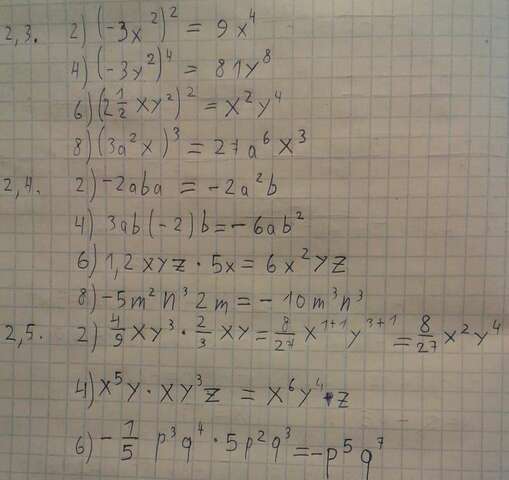 2,3. 2) (-3x²)² = 9x⁴
4) (-3y²)⁴ = 81y⁸
6) (2 1/2 xy²)² = x²y⁴
8) (3a²x)³ = 27a⁶x³
2,4. 2) -2aba = -2a²b
4) 3ab(-2)b = -6ab²
6) 1,2xyz · 5x = 6x²yz
8) -5m²n³2m = -10m³n³
2,5. 2) 4/9 xy³ · 2/3 xy = 8/27 x¹⁺¹y³⁺¹ = 8/27 x²y⁴
4) x⁵y · xy³z = x⁶y⁴·z
6) -1/5 p³q⁴ · 5p²q³ = -p⁵q⁷